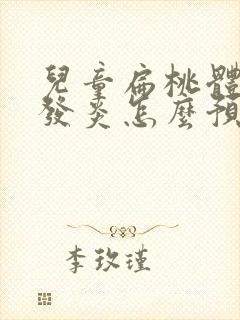 兒童扁桃體
發炎怎麼預
李玫瑾